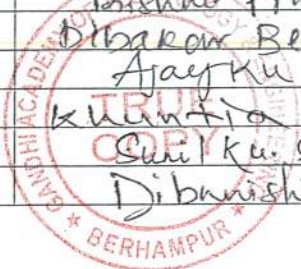 Dibakar Be
Ajay Ku
Khuntia
Sunil Ku. S
Dibanishi
GANDHI ACADEMY OF
TRUE
COPY
BERHAMPUR